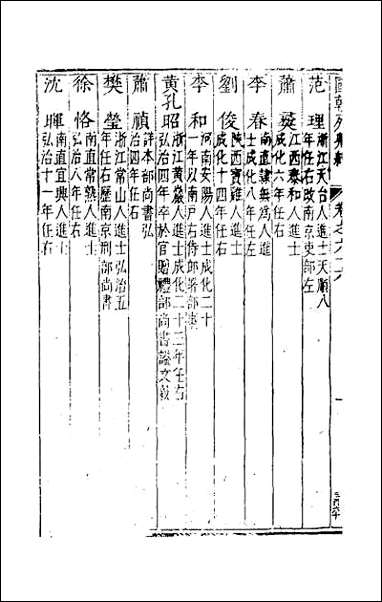 國朝列卿紀 卷之六十六 一
范理 浙江天台人進士天順八
年任右改南京吏部左
蕭 江西泰和人進士
成化六年任右
李春 南直隸無為人進
士成化八年任左
劉俊 陝西寶雞人進士
成化十四年任右
李和 河南安陽人進士成化二十
一年以南戶右侍郎署部事
黃孔昭 浙江黃巖人進士成化二十三年任右
弘治四年卒於官贈禮部尚書諡文毅
蕭禎 詳本部尚書弘
治四年任右
樊瑩 浙江常山人進士弘治五
年任右歷南京刑部尚書
徐恪 南直常熟人進士
弘治八年任右
沈暉 南直宜興人進士
弘治十一年任右